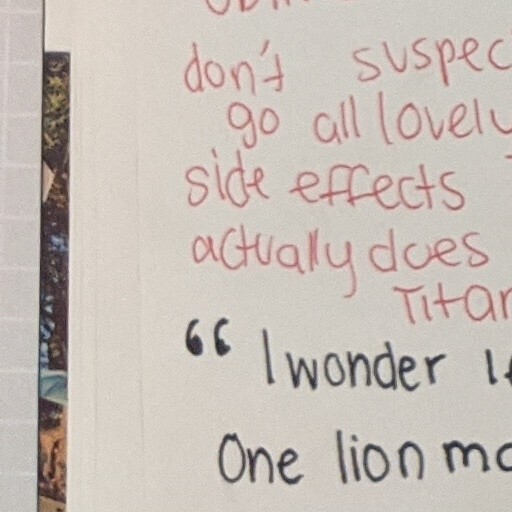 don't suspec
go all lovely
side effects
actually does
Titan
“ I wonder if
One lion mo